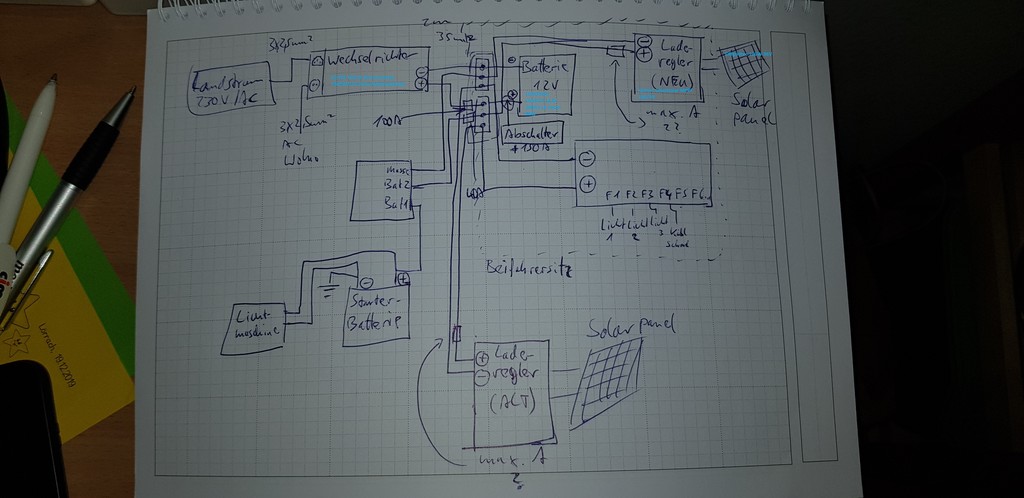 2m
35mm²
3x2,5mm²
Wechselrichter
Landstrom
230V/AC
3x2,5mm²
AC
Womo
100A
Batterie
12V
Abschalter
Lade-
regler
(NEU)
Solar
panel
max. A
??
masse
Bat2
Bat1
40A
F1 F2 F3 F4 F5 F6...
Licht
1
Licht
2
Licht
3
Kühl
schrank
Beifahrersitz
Starter-
Batterie
Licht-
maschine
Lade-
regler
(ALT)
Solarpanel
max. A
?
Lörrach, 19.12.2019